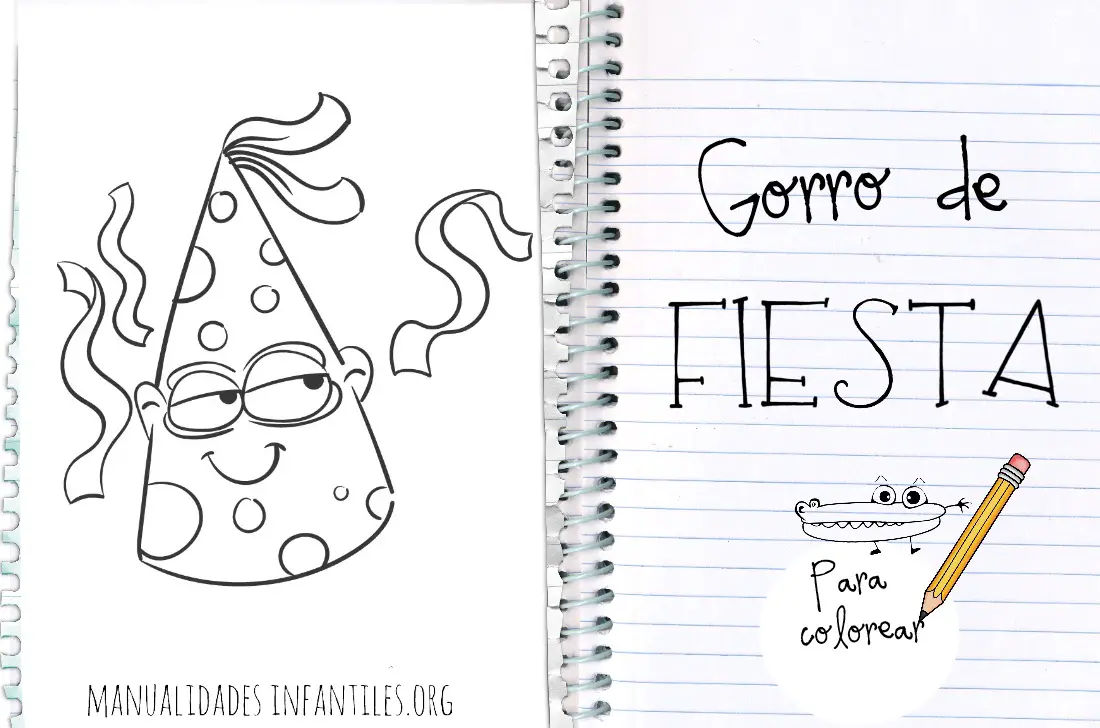 Gorro de
FIESTA
Para
colorear
MANUALIDADES INFANTILES.ORG